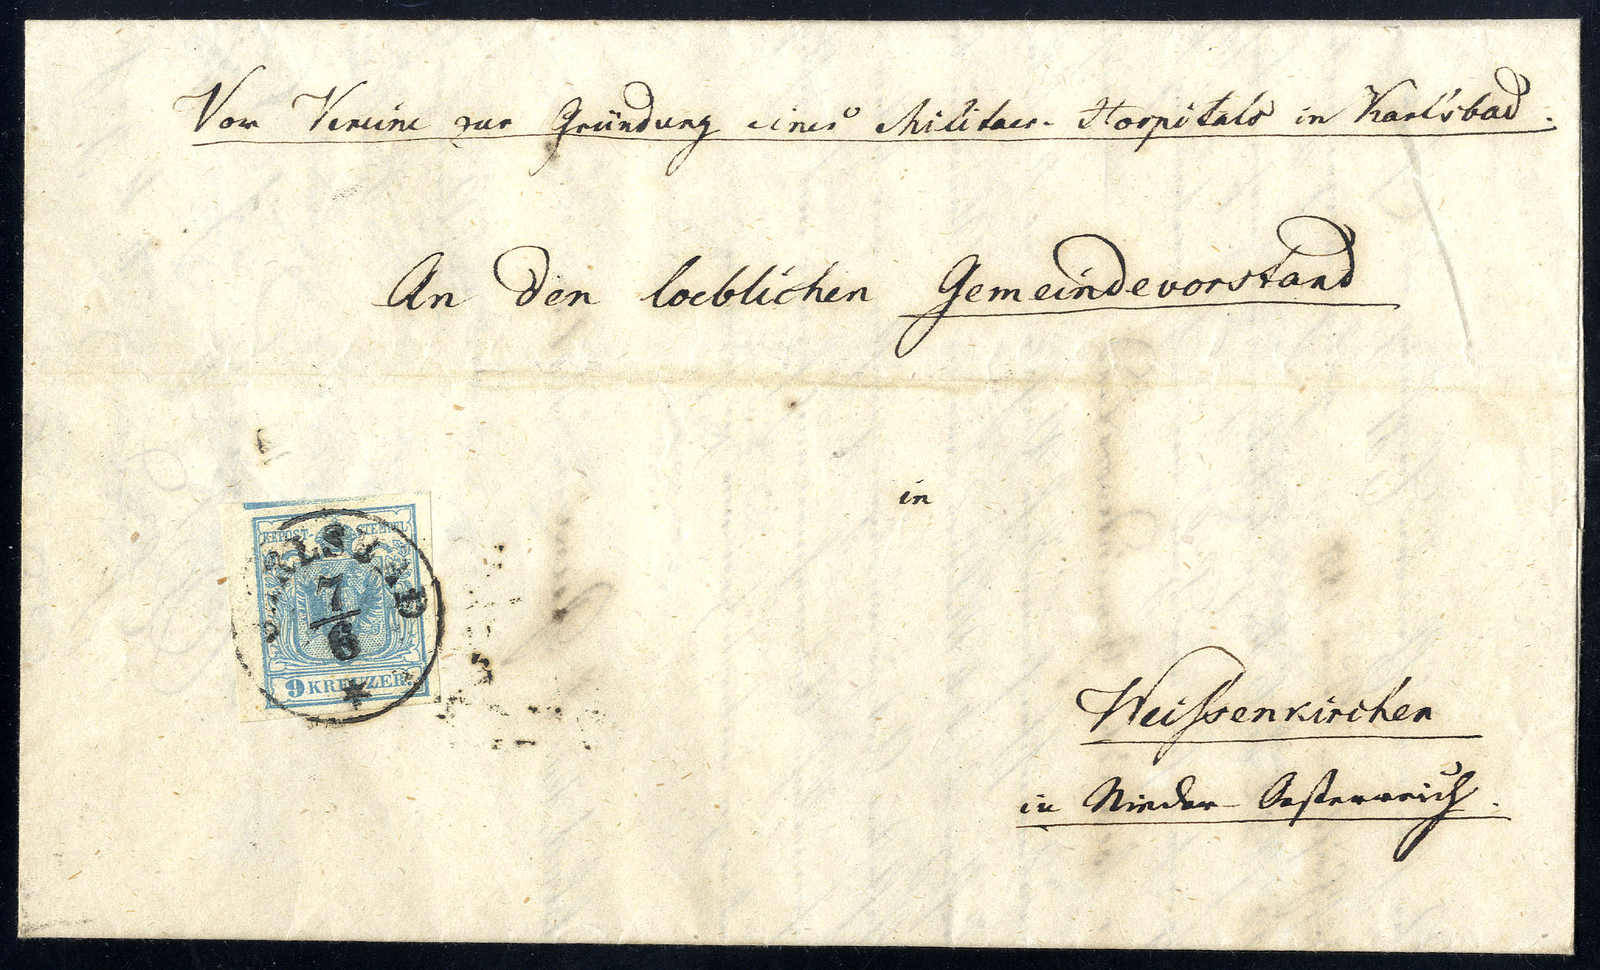 Vom Vereine zur Gründung eines Militaer-Hospitals in Karlsbad.
An den loeblichen Gemeindevorstand
in
KKPOST-STEMPEL
CARLSBAD
7/6
9 KREUZER.
Weissenkirchen
in Nieder-Oesterreich.